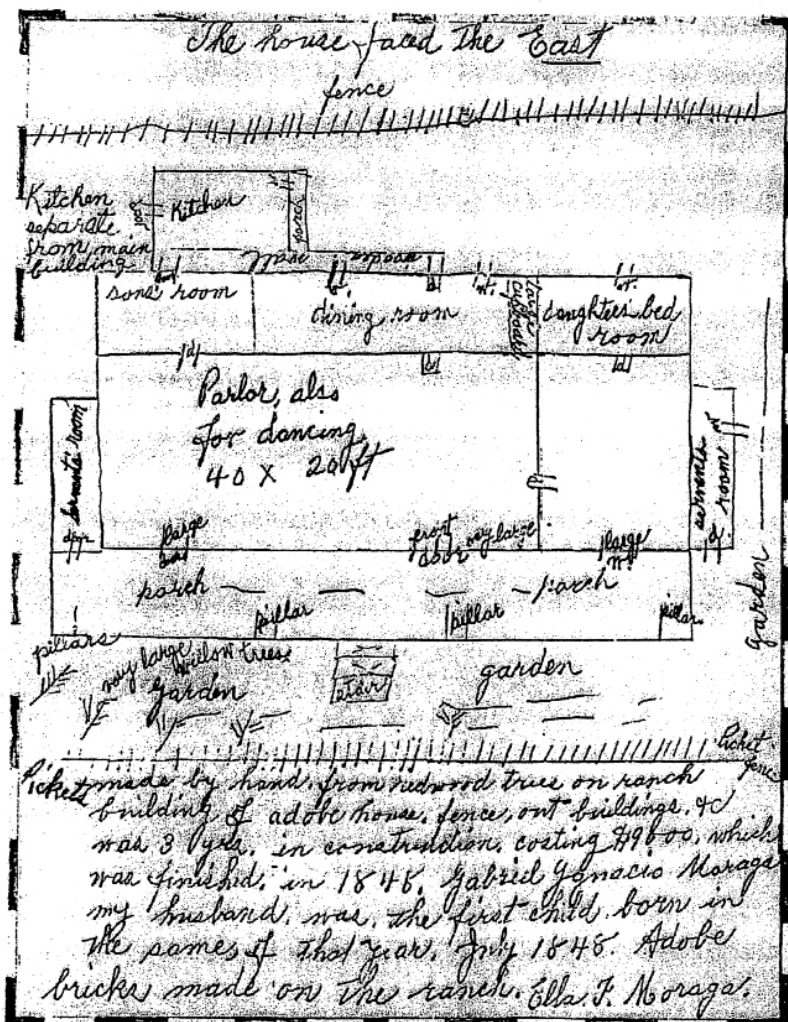 The house faced the East
fence
Kitchen
separate
from main
building
door
Kitchen
w.
porch
sons' room
dining room
large
cupboard
daughters' bed
room
d
d
d
Parlor, also
for dancing
40 X 20 ft
servants' room
door
servants
room
w
d.
large
front
door very large
large
w.
porch
porch
pillars
pillar
pillar
pillar
very large willow trees.
garden
stair
garden
garden
Picket
fence
Pickets made by hand from redwood trees on ranch
building of adobe house, fence, out buildings, &c
was 3 yrs. in construction, costing $9000, which
was finished, in 1848. Gabriel Ygnacio Moraga
my husband, was, the first child born in
the same, of that year, July 1848. Adobe
bricks made on the ranch. Ella F. Moraga.